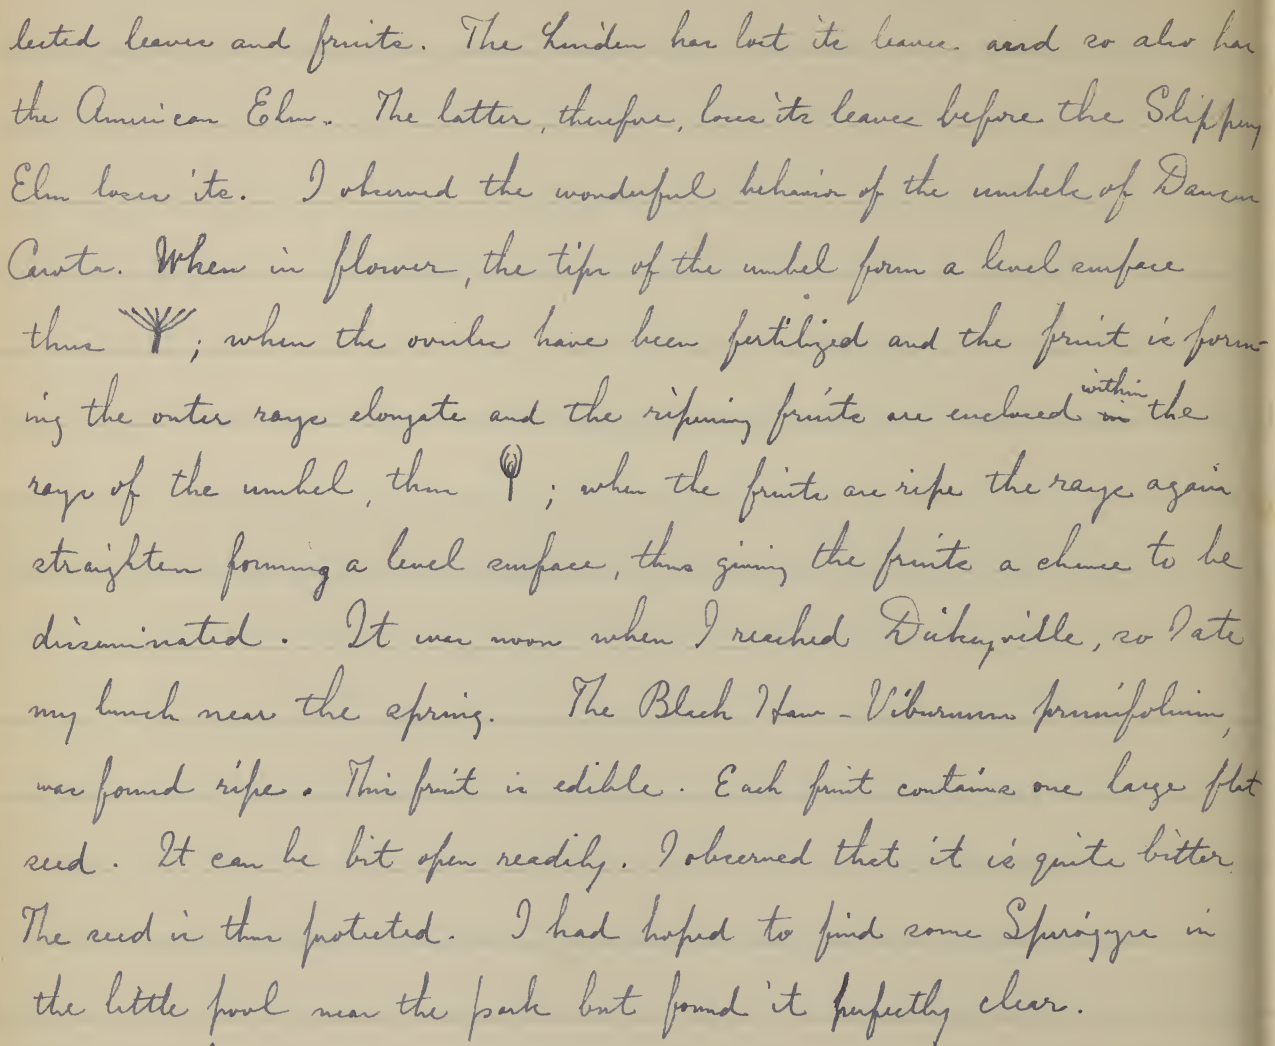 lected leaves and fruits. The Linden has lost its leaves and so also has
the American Elm. The latter, therefore, loses its leaves before the Slippery
Elm loses its. I observed the wonderful behavior of the umbels of Daucus
Carota. When in flower, the tips of the umbel form a level surface
thus ; when the ovules have been fertilized and the fruit is form-
ing the outer rays elongate and the ripening fruits are enclosed within the
rays of the umbel, thus ; when the fruits are ripe the rays again
straighten forming a level surface, thus giving the fruits a chance to be
disseminated. It was noon when I reached Dickeyville, so I ate
my lunch near the spring. The Black Haw - Viburnum prunifolium,
was found ripe. This fruit is edible. Each fruit contains one large flat
seed. It can be bit open readily. I observed that it is quite bitter
The seed is thus protected. I had hoped to find some Spirogyra in
the little pool near the park but found it perfectly clear.